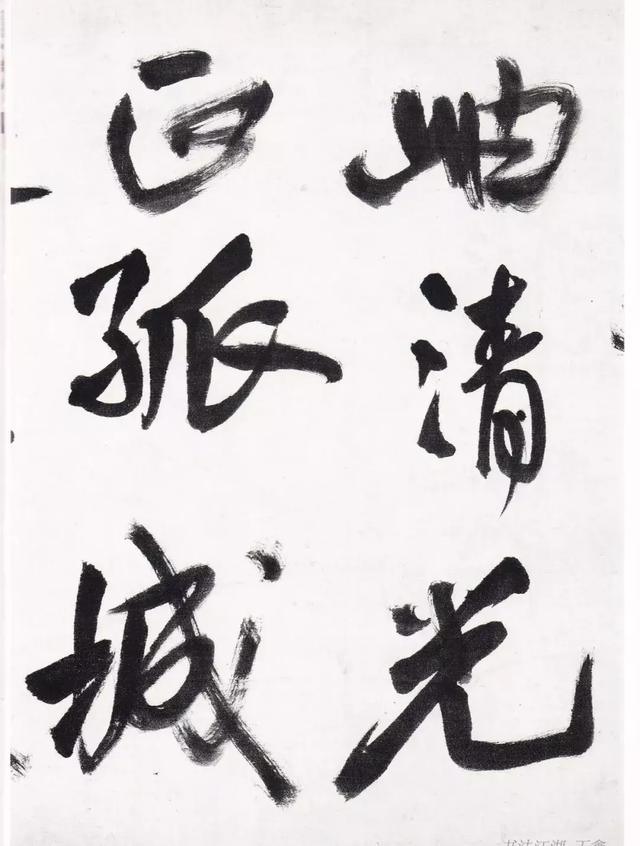 岫清光
孤城